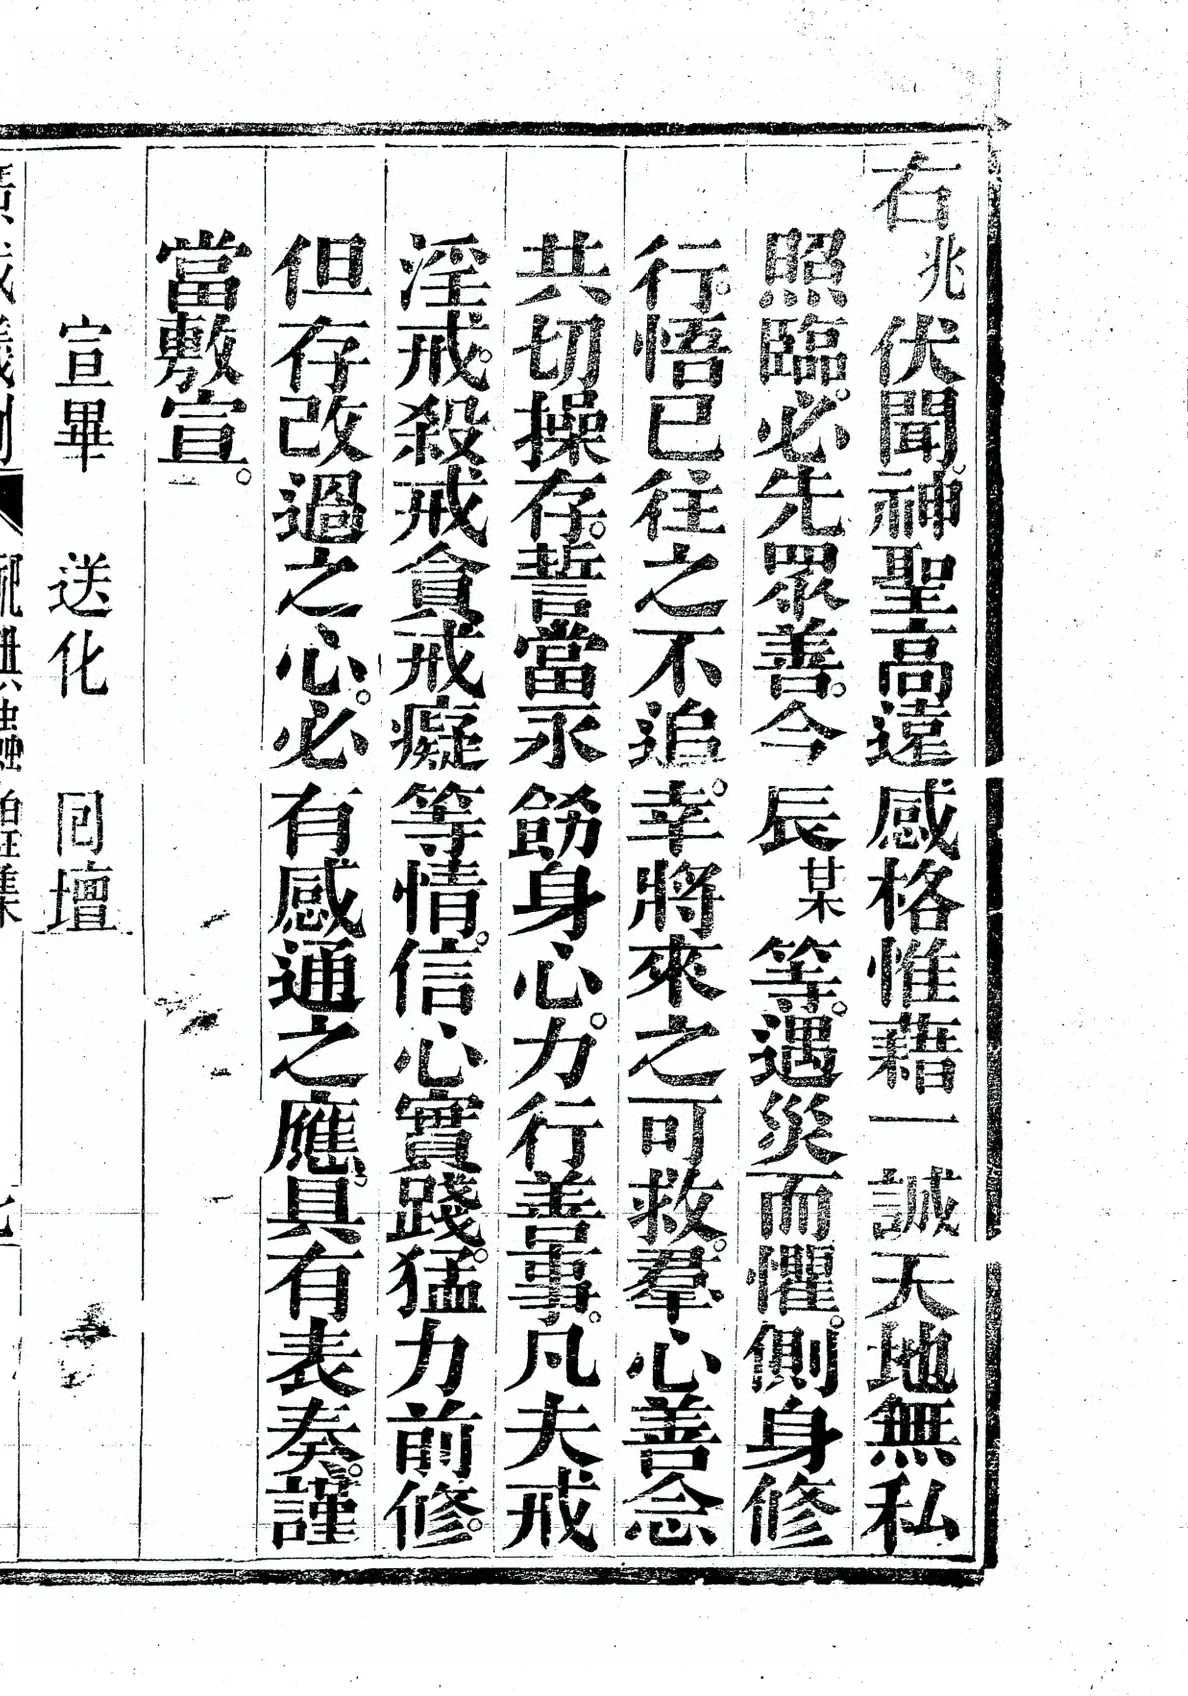 右兆伏聞神聖高遠感格惟藉一誠天地無私
照臨。必先眾善。今辰某等。遇災而懼。側身修
行。悟已往之不追。幸將來之可救。羣心善念
共切操存。誓當永飭身心。力行善事。凡夫戒
淫戒。殺戒貪戒癡等情。信心實踐。猛力前修。
但存改過之心。必有感通之應。具有表奏。謹
當敷宣。
宣畢 送化 回壇